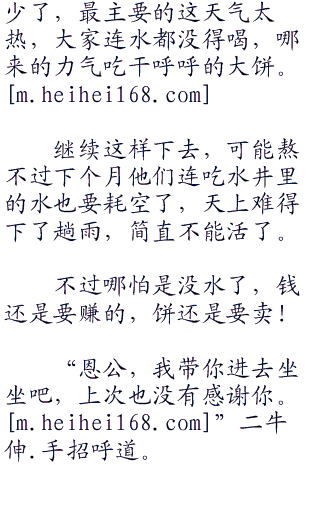 少了，最主要的这天气太
热，大家连水都没得喝，哪
来的力气吃干呼呼的大饼。
[m.heihei168.com]
继续这样下去，可能熬
不过下个月他们连吃水井里
的水也要耗空了，天上难得
下了趟雨，简直不能活了。
不过哪怕是没水了，钱
还是要赚的，饼还是要卖！
“恩公，我带你进去坐
坐吧，上次也没有感谢你。
[m.heihei168.com]”二牛
伸.手招呼道。